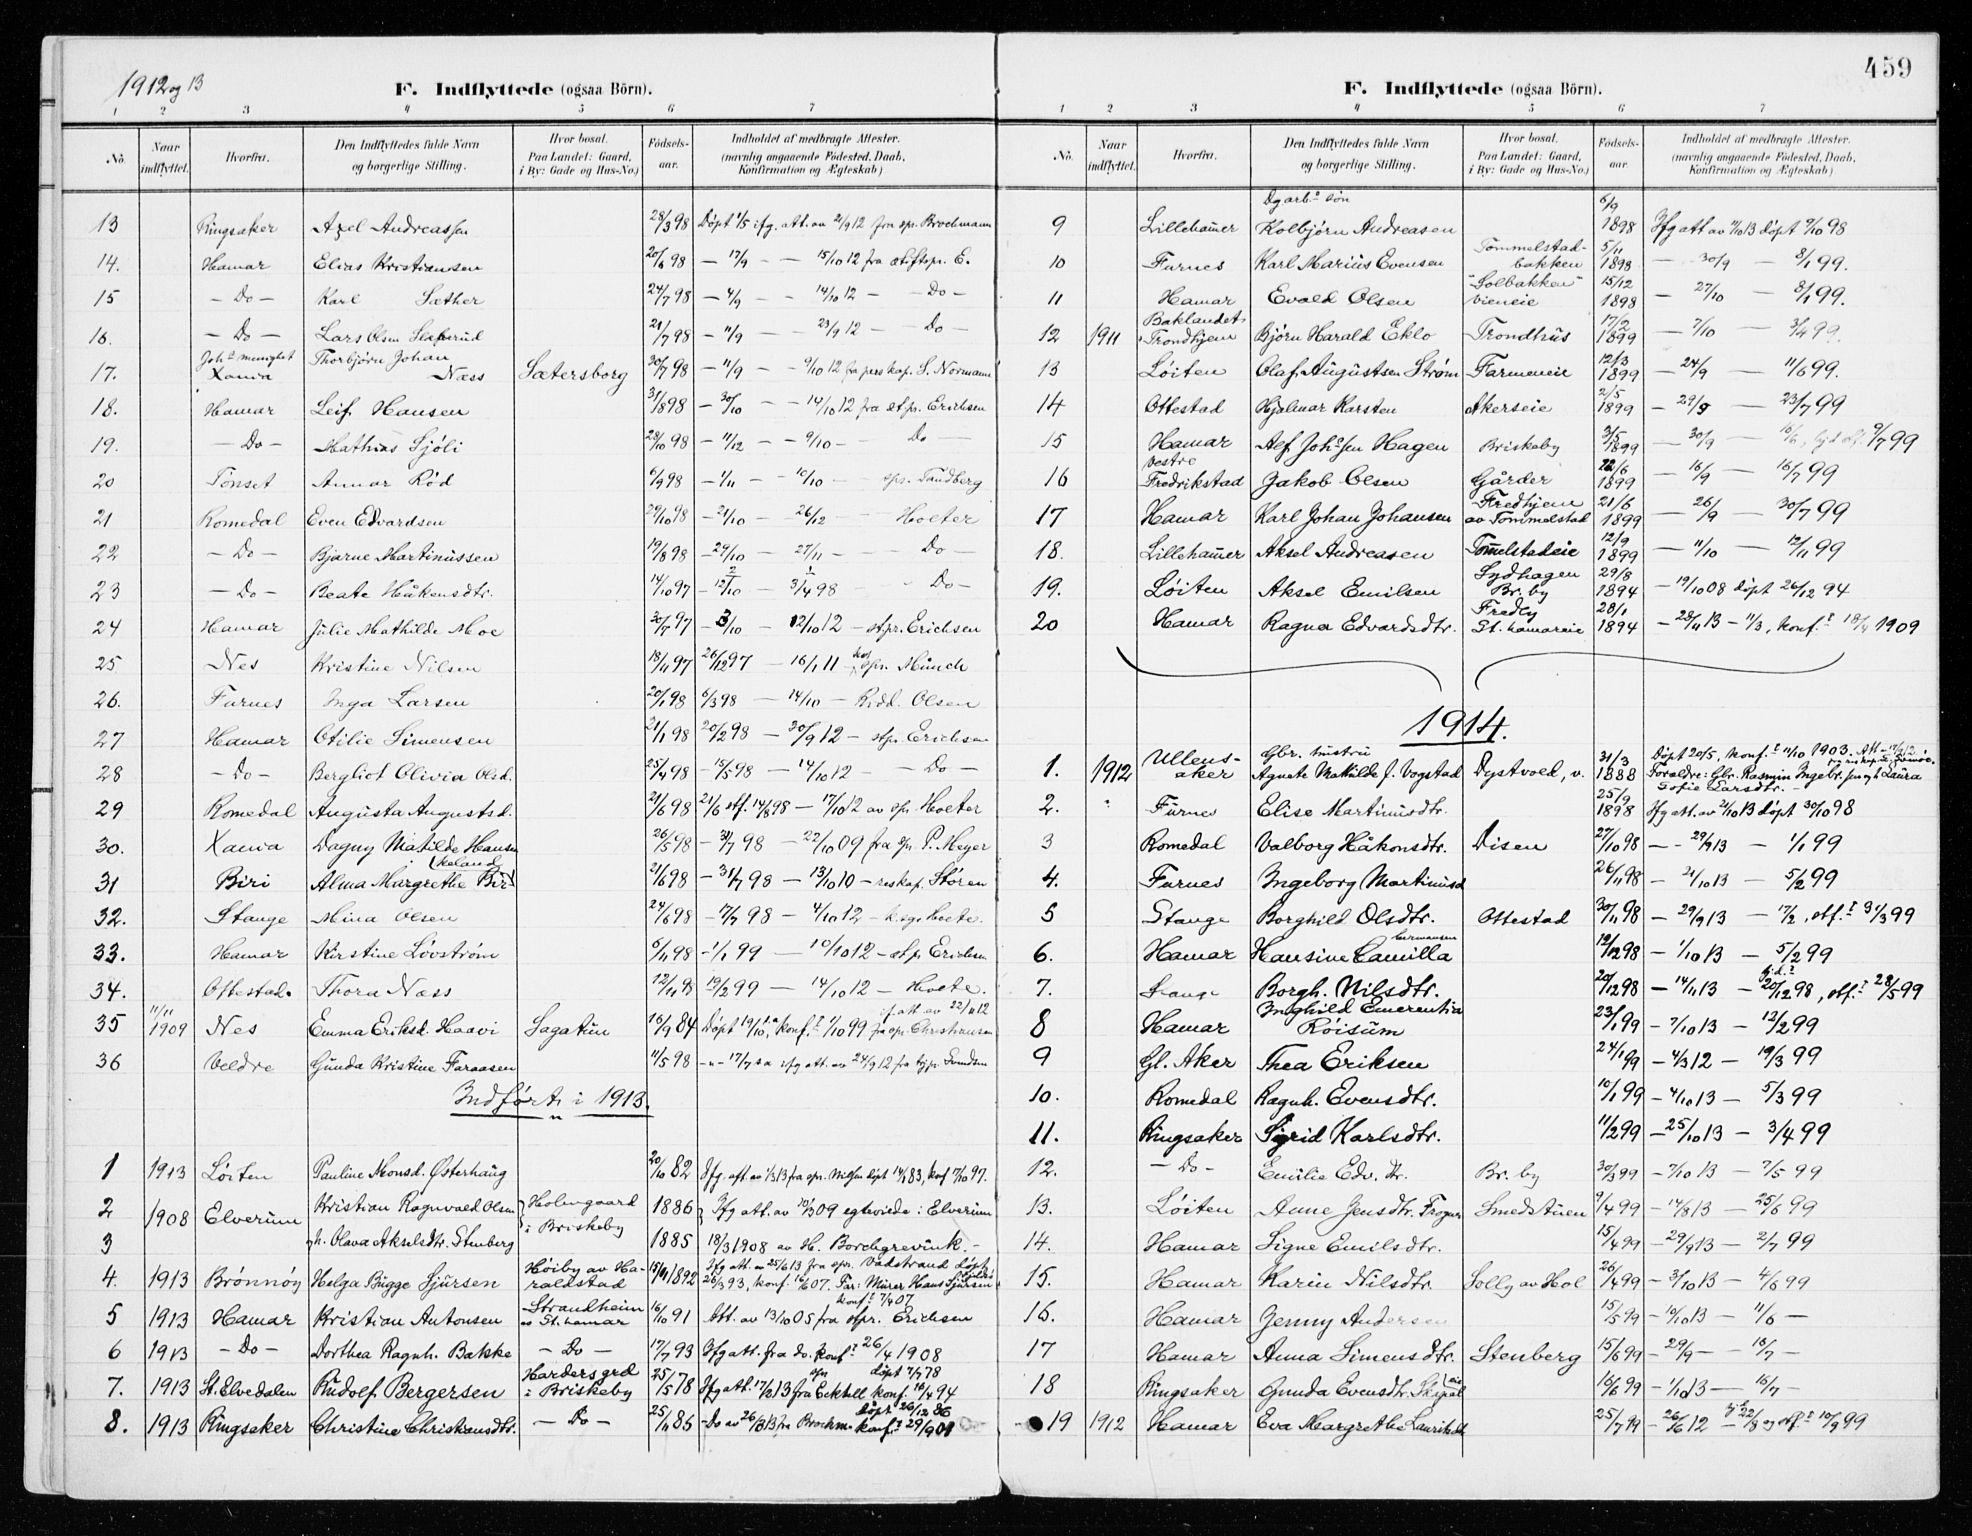 1912 og 13
F. Indflyttede (ogsaa Börn).
1 2 3 4 5 6 7
No. Naar indflyttet. Hvorfra. Den Indflyttedes fulde Navn og borgerlige Stilling. Hvor bosat. Paa Landet: Gaard, i By: Gade og Hus-No.) Fødsels-aar. Indholdet af medbragte Attester. (navnlig angaaende Födested, Daab, Konfirmation og Ægteskab)
13 Ringsaker Axel Andreassen 28/3 98 Døpt 1/5 ifg. att. av 2/9 12 fra spr. Brochmann
14. Hamar Elias Kristiansen 20/6 98 — 17/9 — — 15/10 12 fra stiftspr. E.
15 — Do — Karl Sæther 24/7 98 — 4/9 — — 14/10 12 — — Do —
16. — Do — Lars Olsen 21/7 98 — 11/9 — — 23/9 12 — Do —
17. Joh.s menighet Xania Thorbjørn Johan Næss Sætersborg 30/7 98 — 11/9 — — 9/10 12 fra pers. kap. S. Normann
18. Hamar Leif Hansen 31/8 98 — 30/10 — — 14/10 12 fra stpr. Erichsen
19. — Do — Mathias Sjøli 23/10 98 — 11/12 — — 9/10 — Do —
20 Tønset Annar Rød 6/9 98 — 1/11 — 10/10 — spr. Sandberg
21 Romedal Even Edvardsen 29/10 98 — 21/10 — 26/12 — Hoeter
22 — Do — Bjarne Martinussen 19/8 98 — 29/10 — 27/11 — Do —
23 — Do — Beate Håkensdtr. 14/10 97 — 12/10 — 3/4 98 — Do —
24 Hamar Julie Mathilde Moe 30/7 97 — 3/10 — 12/10 12 — stpr. Erichsen
25 Nes Kristine Nilsen 18/11 97 26/12 97 — 16/1 11 hos spr. Münch
26. Furnes Inga Larsen 20/1 98 6/3 98 — 14/10 — Ridd. Olsen
27 Hamar Otilie Simensen 21/1 98 20/2 98 — 30/9 12 — stpr. Erichsen
28 — Do — Bergliot Olivia Olsd. 25/4 98 — 15/5 98 — 14/10 12 — — Do —
29 Romedal Augusta Augustsd. 21/6 98 21/6 stf. 14/8 98 — 17/10 12 av spr. Hoeter
30. Xania Dagny Matilde Hansen 26/5 98 — 31/7 98 — 22/10 09 fra spr. P. Meyer
31 Biri Alma Margrethe Biri 21/6 98 — 31/7 98 — 13/10 10 — res. kap. Støren
32. Stange Mina Olsen 24/6 98 — 17/7 98 — 4/10 12 —
33. Hamar Kirstine Løvstrøm 6/11 98 — 1/1 99 — 10/10 12 — stpr. Erichsen
34. Ottestad. Thora Næss 12/11 98 19/2 99 — 14/10 12 — Hoete.
35 11/11 1909 Nes Emma Eriksd. Haavi Sagatun 16/9 84 Døpt 19/10 s.a. konf.t 1/10 99 if. att. av 22/11 12 fra spr. Christiansen
36 Veldre Gunda Kristine Faraasen 11/5 98 — " — 17/7 s a ifg att. av 24/9 12 fra
Indført i 1913.
1 1913 Løiten Pauline Monsd. Østerhaug 20/10 82 Ifg. att. av 1/3 13 fra spr. Nilsen døpt 14/1 83, konf 7/10 97.
2 1908 Elverum Kristian Ragnvald Olsen Holengaard i Briskeby 1886 Ifg att. av 10/3 09 egteviede i Elverum
3 h. Olava Akselsdtr. Stenberg 1885 18/3 1908 av H. Borchgrevink. —
4. 1913 Brønnøy Helga Bugge Sjursen Høiby av Haraldstad 15/1 1892 Ifg att. av 25/6 13 fra spr. Vadstrand døpt 26/3 93, konf. 14/6 07. Far: Murer Hans Sjursen
5 1913 Hamar Kristian Antonsen Strandheim av St. hamar 16/10 91 konf.t 7/4 07 Att. av 13/10 05 fra stpr. Erichsen
6 1913 — Do — Dorthea Ragnh. Bakke — Do — 17/7 93 Ifg att. fra do. konf.t 26/4 1908
7. 1913 St. Elvedalen Rudolf Bergersen Hardersgrd i Briskeby 25/5 78 Ifg att. 17/2 13 fra spr. døpt 7/7 78 konf. 10/4 94
8. 1913 Ringsaker Christine Christiansdtr. — Do — 25/11 86 — Do av 26/8 13 fra Brochm. døpt 26/12 86 konf.t 29/9 01
459
F. Indflyttede (ogsaa Börn).
1 2 3 4 5 6 7
No. Naar indflyttet. Hvorfra. Den Indflyttedes fulde Navn og borgerlige Stilling. Hvor bosat. Paa Landet: Gaard, i By: Gade og Hus-No.) Fødsels-aar. Indholdet af medbragte Attester. (navnlig angaaende Födested, Daab, Konfirmation og Ægteskab)
9 Lillehamer Dgarb.s søn Kolbjørn Andreasen 6/9 1898 Ifg att av 11/10 13 døpt 9/10 98
10 Furnes Karl Marius Evensen Tommelstad-bakken 5/11 1898 — 30/9 — 8/1 99.
11 Hamar Evald Olsen "Solbakken" vieneie 15/12 1898 — 27/10 — 8/1 99.
12 1911 Baklandet Trondhjem Bjørn Harald Eklo Trondhus 17/2 1899 — 7/10 — 3/4 99.
13 Løiten Olaf Augustsen Strøm Farmeneie 12/3 1899 — 24/9 — 11/6 99.
14 Ottestad Hjalmar Karsten Akerseie 2/5 1899 — 29/9 — 23/7 99
15 Hamar Alf Joh.sen Hagen Briskeby 3/5 1899 — 30/9 — 16/6, 9/7 99
16 Vestre Fredrikstad Jakob Olsen Gårder 22/6 1899 — 16/9 — 16/7 99
17 Hamar Karl Johan Johansen Fredhjem av Tommelstad 21/6 1899 — 26/9 — 30/7 99
18. Lillehamer Aksel Andreasen Tomelstadeie 12/9 1899 — 11/10 — 12/11 99
19. Løiten Aksel Emilsen Sydhagen Br. by 29/8 1894 — 19/10 08 døpt 26/12 94
20 Hamar Ragna Edvardsdtr. Fredly St. hamareie 28/1 1894 — 28/11 13 — 11/3, konf.t 18/4 1909
1914.
1. 1912 Ullensaker Gbr. hustru Agnete Matilde f. Vogstad Dystvold, v. 31/3 1888 Døpt 20/5, konf.t 11/10 1903. Forældre: Gbr. Rasmin Ingebr.sen og h Laura Sofie Larsdtr. —
2. " Furnes Elise Martinusdtr. 25/9 1898 Ifg att. av 2/10 13 døpt 30/10 98
3 Romedal Valborg Håkonsdtr. Disen 27/10 98 — — 29/9 13 — 1/1 99
4. Furnes Ingeborg Martinusd 26/11 98 — 2/10 13 — 5/2 99
5 Stange Borghild Olsdtr. Ottestad 30/11 98 — 29/9 13 — 17/2, stf.t 31/3 99
6. Hamar Hansine Camilla Hermansen 12/12 98 — 1/10 13 — 5/2 99
7. Stange Borgh. Nilsdtr. 20/12 98 — 14/11 13 — hjd.t 20/12 98, stf.t 28/5 99
8 Hamar Inghild Emerentia Røisum 23/1 99 — 7/10 13 — 12/2 99
9 Gl. Aker Thea Eriksen 24/1 99 — 4/3 12 — 19/3 99
10. Romedal Ragnh. Evensdtr. 10/1 99 — 4/10 13 — 5/3 99
11. Ringsaker Sigrid Karlsdtr. 11/2 99 — 25/10 13 — 3/4 99
12. — Do — Emilie Edv. dtr. Br. by 30/3 99 — 7/10 13 — 7/5 99
13. Løiten Anne Jensdtr. Frogner Smedstuen 9/4 99 — 14/8 13 — 25/6 99
14. Hamar Signe Emilsdtr. 15/4 99 — 29/9 13 — 2/7 99
15. Hamar Karin Nilsdtr. Solly av Hol 26/4 99 — 3/10 13 — 4/6 99
16. Hamar Jenny Andersen 15/5 99 — 10/10 13 — 11/6 —
17 Hamar Anna Simensdtr. Stenberg 15/6 99 — 29/9 — 16/7 —
18 Ringsaker Gunda Evensdtr. 16/6 99 — 1/10 13 — 16/7 —
19 1912 Hamar Eva Margrethe 25/7 99 — 26/6 12 — 22/8 og stf.t 10/9 99